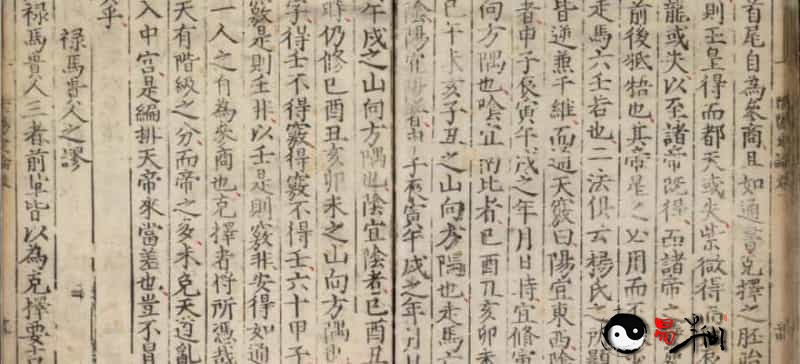 首尾自為參商且如通書克擇之胚胎
則玉皇得而都天或失紫微得而
龍或失以至諸帝既得而諸帝之
前後牴牾也其帝星之必用而不
走馬六壬若也二法俱云楊氏之所
皆逆兼干維而通天竅曰陽宜東西陰
者申子辰寅午戌之年月日時宜修寅
向方隅也陰宜 者巳酉丑亥卯
巳午未亥子丑之山向方隅也走馬六
陰陽宜 子辰寅午戌之年月日
午戌之山向方隅也陰宜陰者巳酉丑
時仍修巳酉丑亥卯未之山向方隅也
字得壬不得竅得竅不得壬六十甲子
竅是則壬非以壬是則竅非安得如通
一人之自為參商也克擇者將所憑哉
天有階級之分而帝之多未免天道亂
入中宮是編排天帝來當差也豈不冒
乎
祿馬貴人之謬
祿馬貴人三者前輩皆以為克擇要
易羊仙